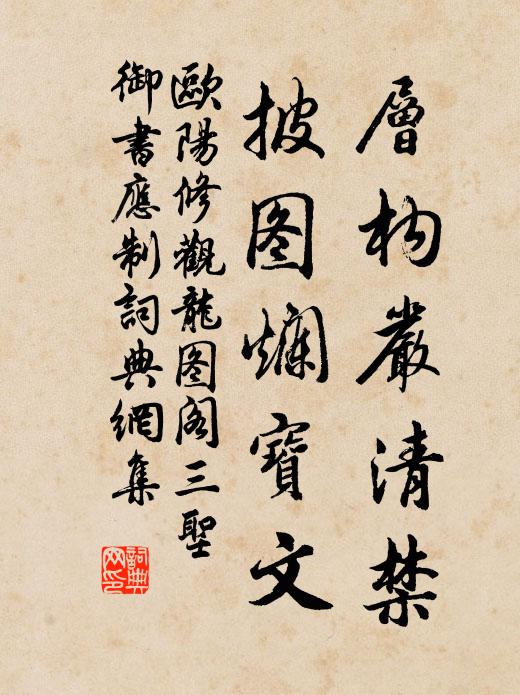 层构嚴清禁
披图爛寳文
歐陽修觀龍图阁三聖
御書應制詞典網集
詞典网印